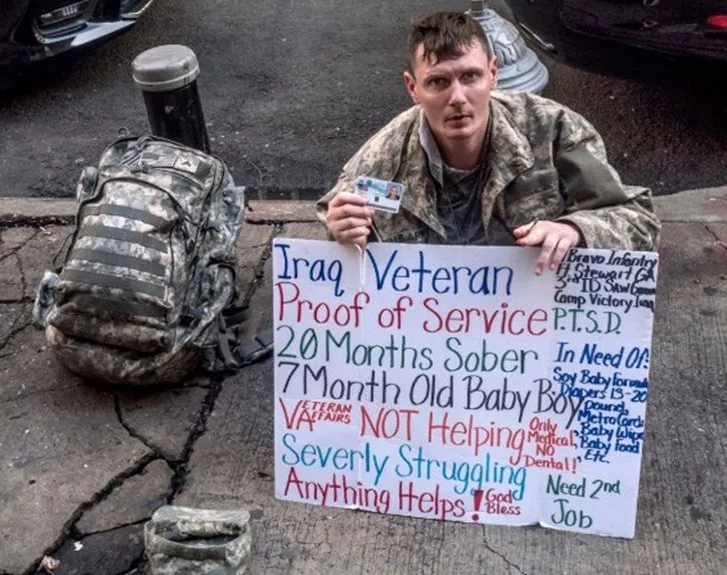 Iraq Veteran
Proof of Service
20 Months Sober
7 Month Old Baby Boy
VETERAN
VA AFFAIRS NOT Helping
Only
Medical,
NO
Dental!!
Severly Struggling
Anything Helps!
God
Bless
Bravo Infantry
Ft Stewart GA
3rd ID SAW
Camp Victory Iraq
P.T.S.D.
In Need Of:
Soy Baby Formula
Diapers 13-20
pound,
MetroCard,
Baby Wipe,
Baby Food
, Etc.
Need 2nd
Job